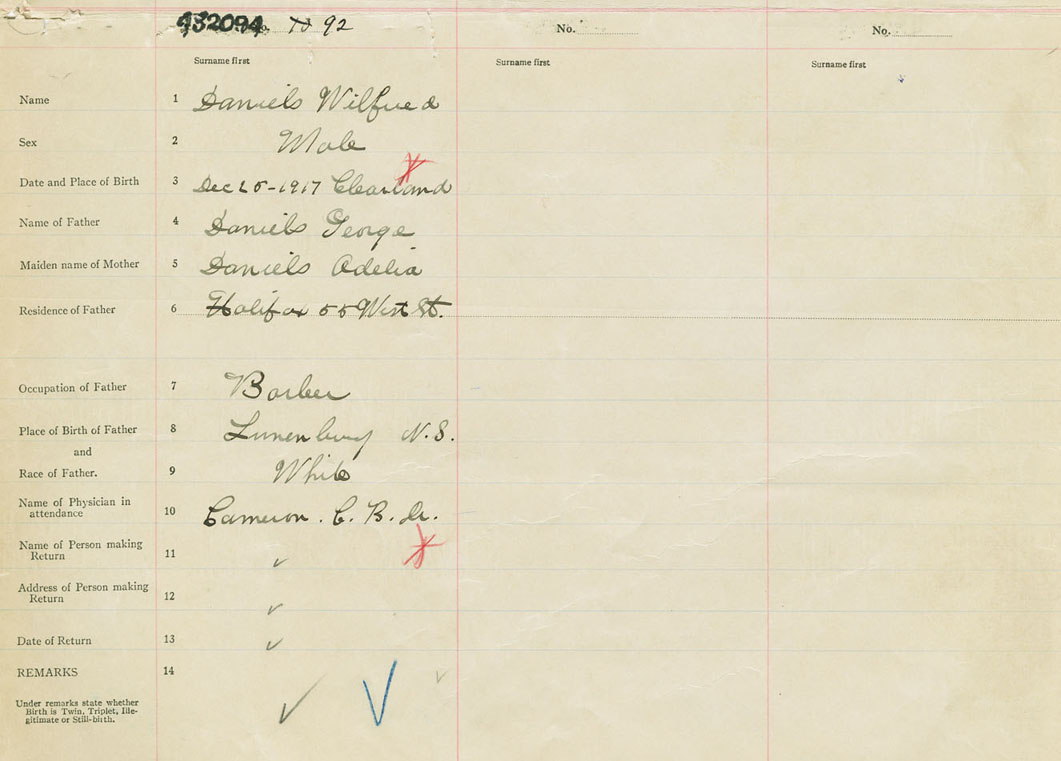 932094 No. 92 No. No.
Surname first Surname first Surname first
Name 1 Daniels Wilfred
Sex 2 Male
Date and Place of Birth 3 Dec 25-1917 Clearland
Name of Father 4 Daniels George
Maiden name of Mother 5 Daniels Adelia
Residence of Father 6 Halifax 55 West St.
Occupation of Father 7 Barber
Place of Birth of Father 8 Lunenburg N.S.
and
Race of Father. 9 White
Name of Physician in
attendance 10 Cameron. C. B. Dr.
Name of Person making
Return 11
Address of Person making
Return 12
Date of Return 13
REMARKS 14
Under remarks state whether
Birth is Twin, Triplet, Ille-
gitimate or Still-birth.